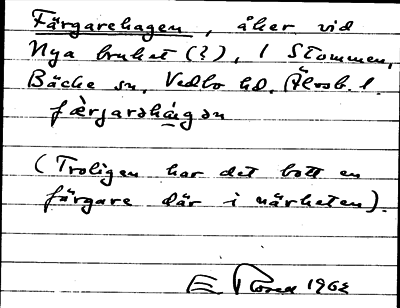 Färgarehagen, åker vid
Nya bruket (?), 1 Stommen,
Bäcke sn, Vedbo hd, Älvsb. l.
færjarəhágən
(Troligen har det bott en
färgare där i närheten).
E Rosen 1962